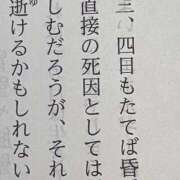 三、四目もたてば昏
直接の死因としては
しむだろうが、それ
逝けるかもしれない